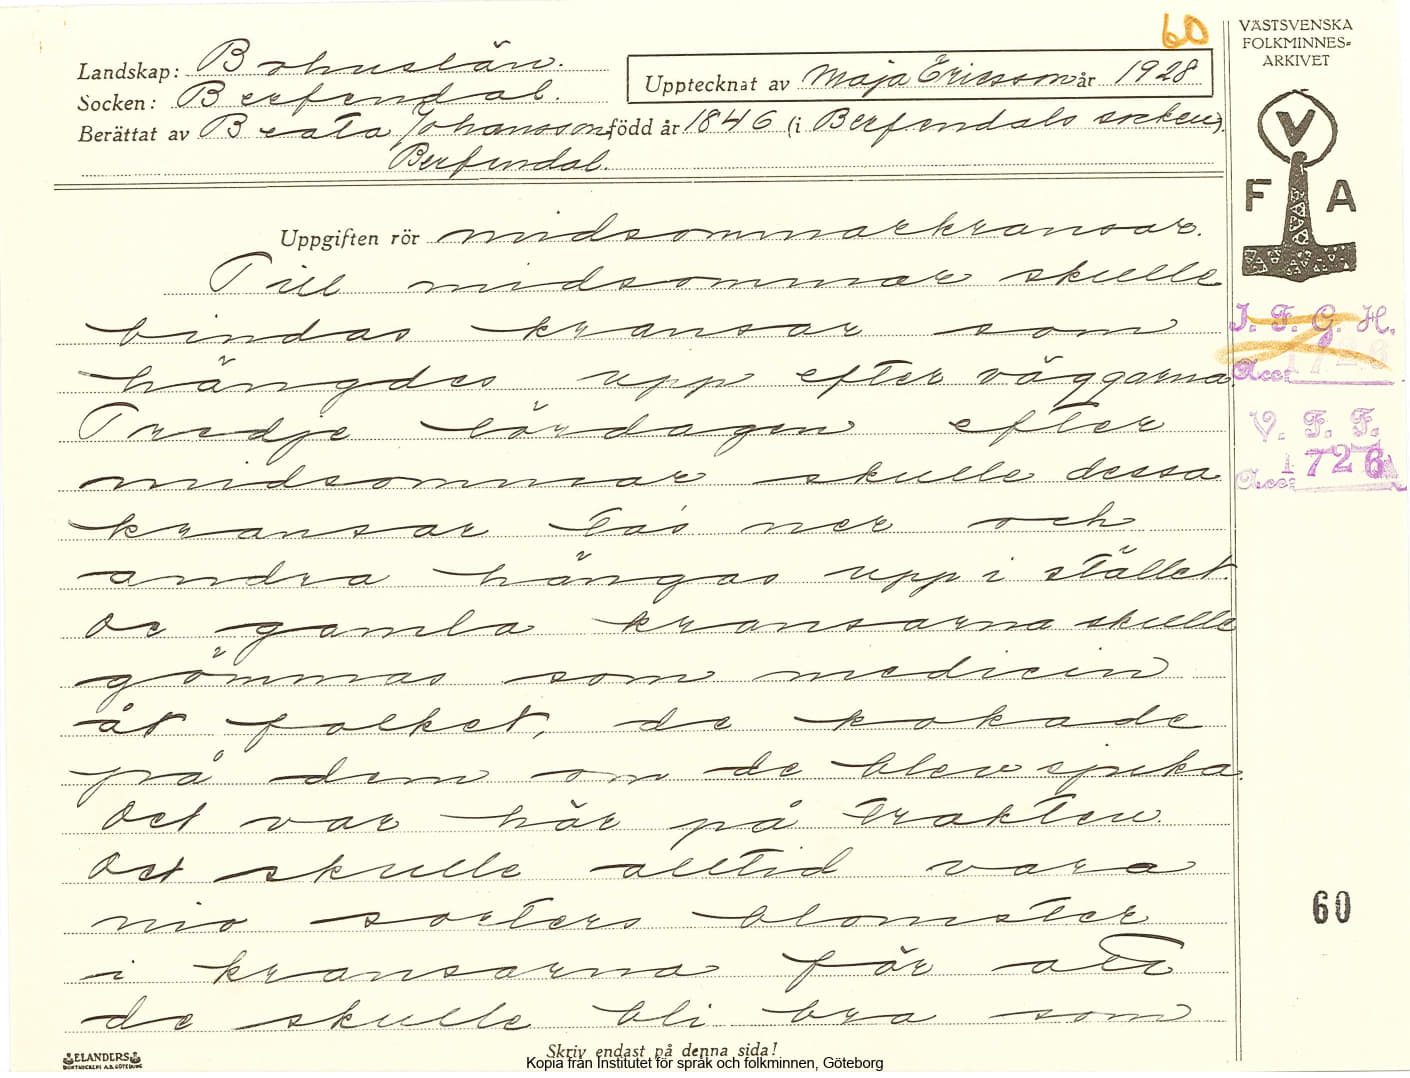 60
VÄSTSVENSKA
FOLKMINNES-
ARKIVET
Landskap: Bohuslän.
Upptecknat av Maja Ericsson år 1928
Socken: Berfendal.
Berättat av Beata Johansson född år 1846 (i Berfendals socken).
Berfendal.
V
F A
Uppgiften rör midsommarkransar.
Till midsommar skulle
bindas kransar som
hängdes upp efter väggarna.
Tredje lördagen efter
midsommar skulle dessa
kransar tas ner och
andra hängas upp i stället.
De gamla kransarna skulle
gömmas som medicin
åt folket, de kokade
på dem om de blev sjuka.
Det var här på trakten.
Det skulle alltid vara
nio sorters blomster
i kransarna för att
de skulle bli bra som
I. F. G. H.
Acc: 1726
V. F. F.
Acc: 1726
60
Skriv endast på denna sida!
ELANDERS
BOKTRYCKERI A.B. GÖTEBORG
Kopia från Institutet för språk och folkminnen, Göteborg